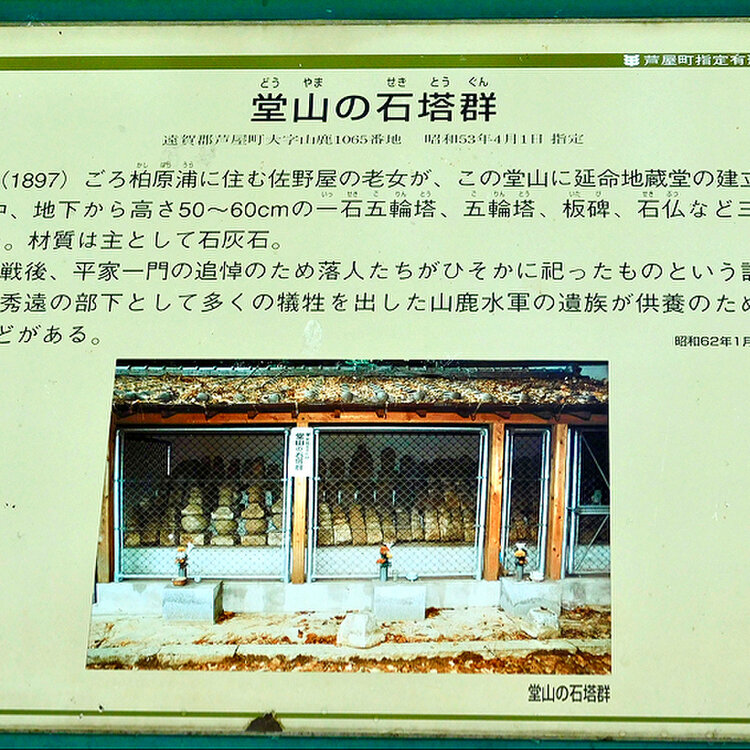 芦屋町指定有
どう やま せき とう ぐん
堂山の石塔群
遠賀郡芦屋町大字山鹿1065番地 昭和53年4月1日 指定
かし ばら うら
(1897) ごろ柏原浦に住む佐野屋の老女が、この堂山に延命地蔵堂の建立
いっ せき ご りん とう ご りん とう いた び せき ぶつ
、地下から高さ50〜60cmの一石五輪塔、五輪塔、板碑、石仏など三
。材質は主として石灰石。
戦後、平家一門の追悼のため落人たちがひそかに祀ったものという
秀遠の部下として多くの犠牲を出した山鹿水軍の遺族が供養のため
どがある。
昭和62年1月
堂山の石塔群
堂山の石塔群